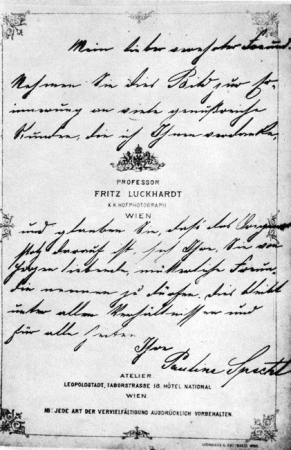 Mein lieber verehrter Freund!
Nehmen Sie dies Bild zur Er-
innerung an viele genußreiche
Stunden, die ich Ihnen verdanke,
PROFESSOR
FRITZ LUCKHARDT
K.K. HOFPHOTOGRAPH
WIEN
und glauben Sie, daß das
stolz darauf ist, sich Ihre, Sie von
Herzen liebende, mütterliche Freun-
din nennen zu dürfen, die bleibt
unter allen Verhältnissen und
für alle Zeiten
Ihre
Pauline Specht
ATELIER
LEOPOLDSTADT, TABORSTRASSE 18, HÔTEL NATIONAL
WIEN.
JEDE ART DER VERVIELFÄLTIGUNG AUSDRÜCKLICH VORBEHALTEN.